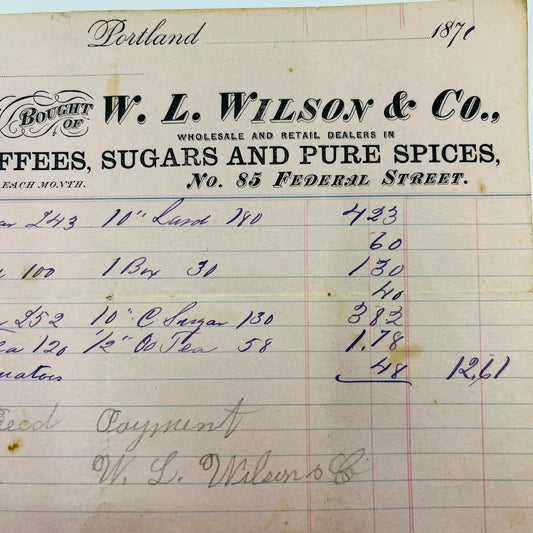 Portland 187
BOUGHT OF W. L. WILSON & CO.,
WHOLESALE AND RETAIL DEALERS IN
FFEES, SUGARS AND PURE SPICES,
EACH MONTH. No. 85 FEDERAL STREET.
243 10" Lard 180 423
60
100 1 Box 30 130
40
252 10" C Sugar 130 382
120 1/2" Oo Tea 58 1.78
48 12,61
Recd Payment
W. L. Wilson & Co